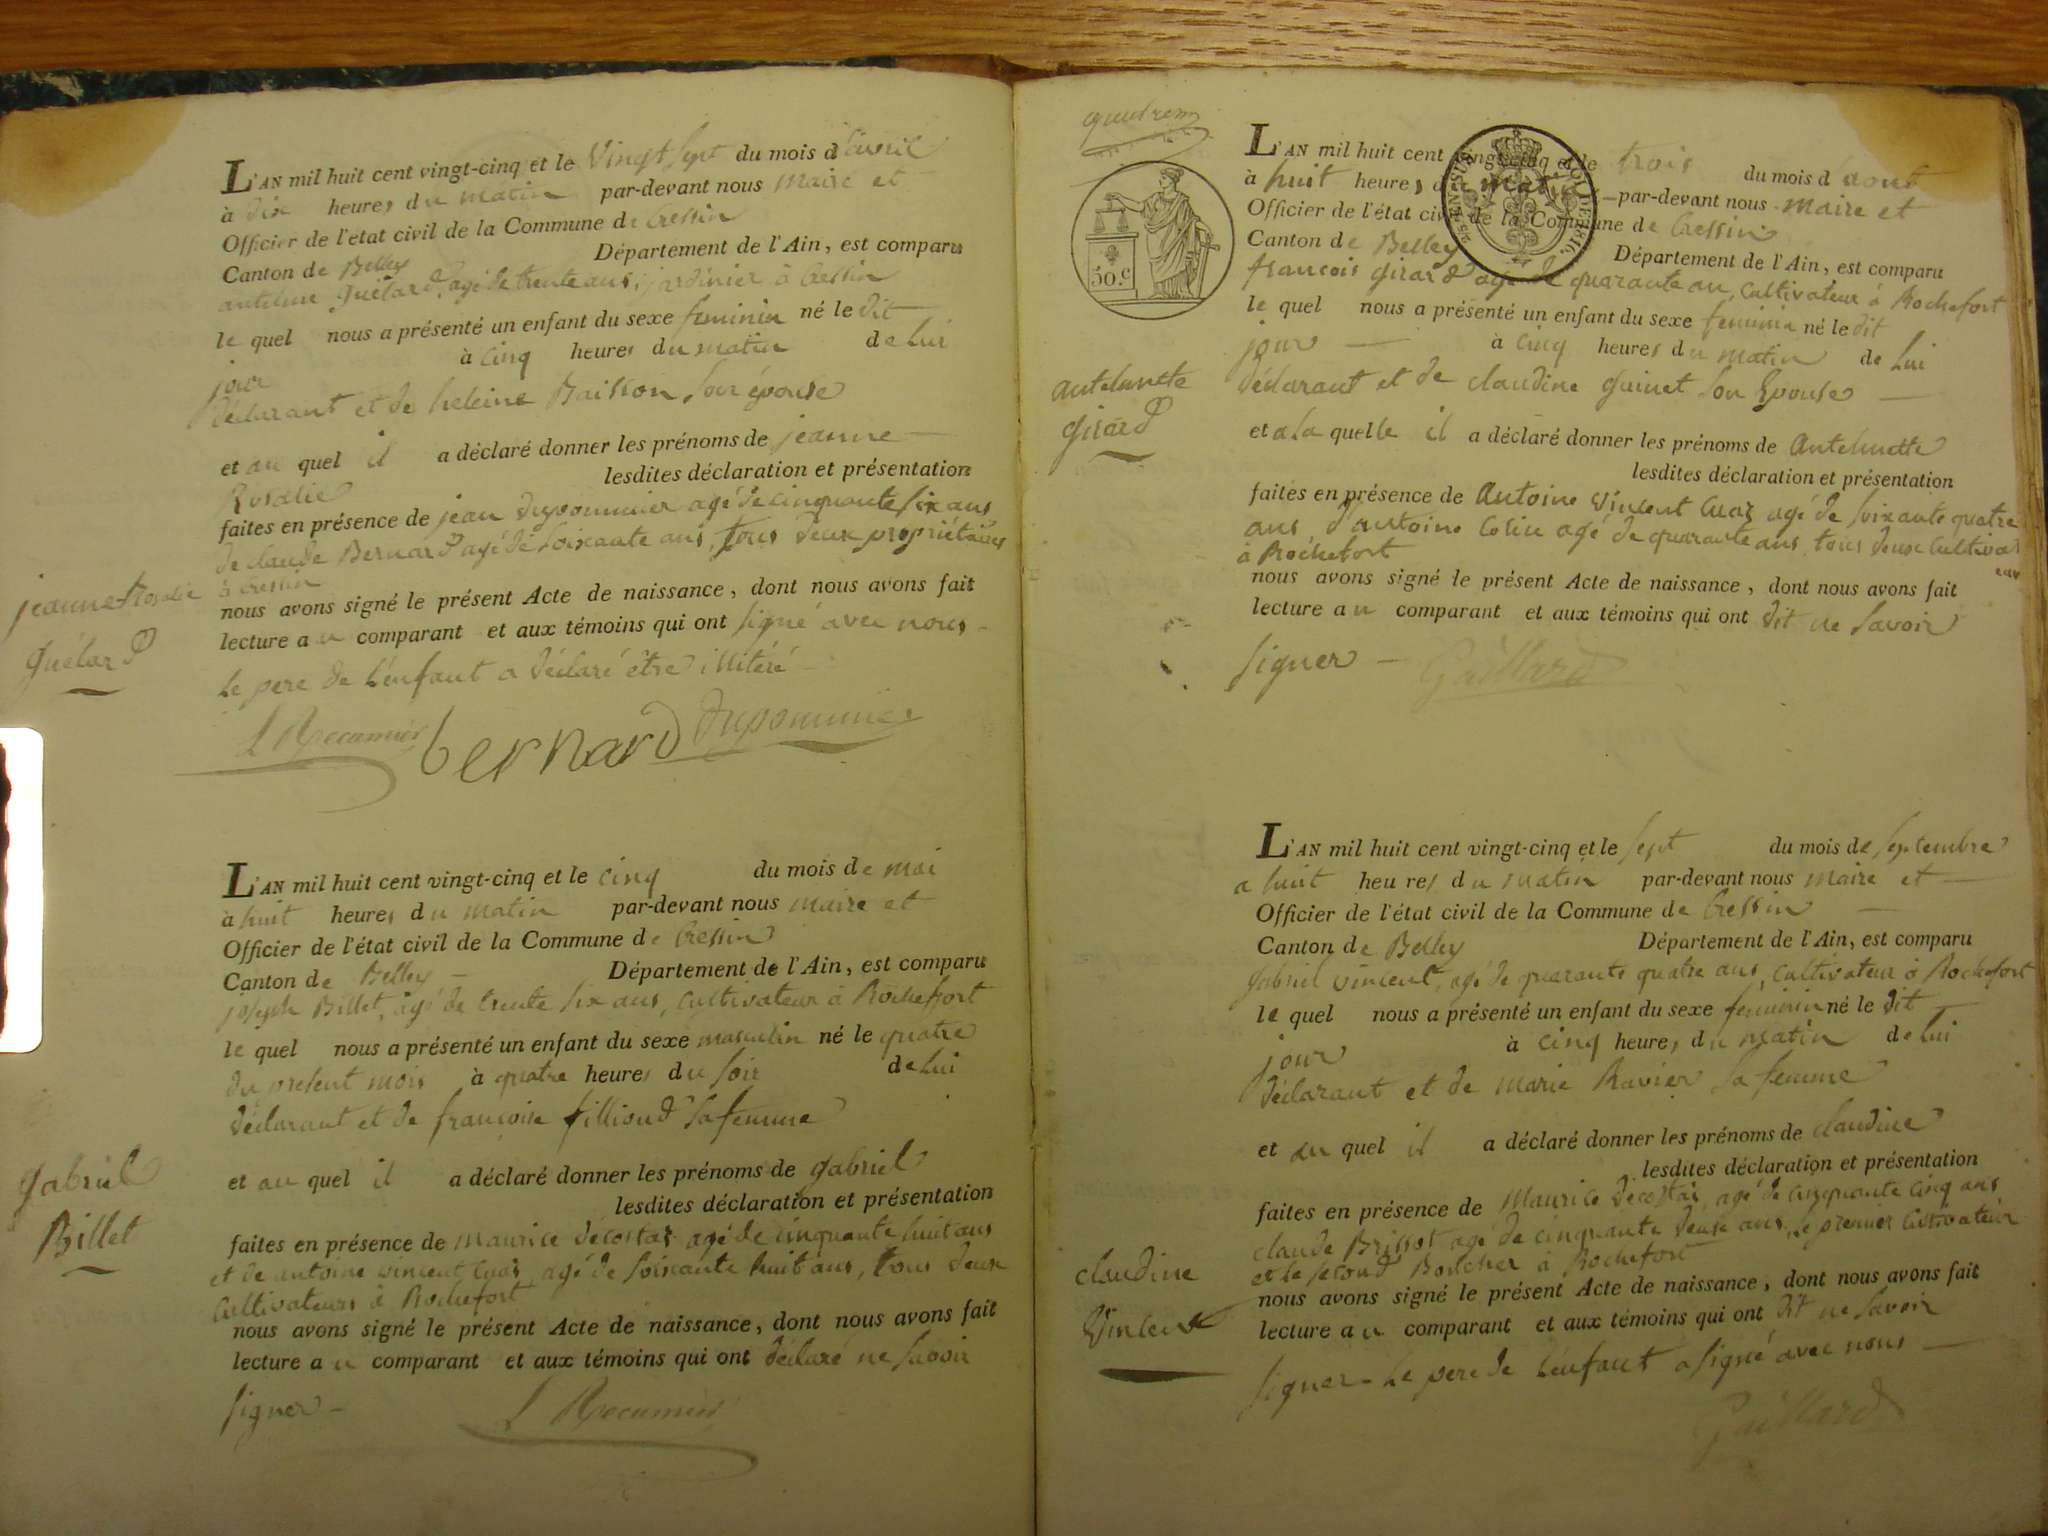 L'AN mil huit cent vingt-cinq et le Vingt sept du mois d'avril
à dix heures du matin par-devant nous maire et
Officier de l'état civil de la Commune de Cressin
Canton de Belley Département de l'Ain, est comparu
antelme Guélard, agé de trente ans, jardinier à Cressin
le quel nous a présenté un enfant du sexe feminin né le dit
jour à cinq heures du matin de Lui
déclarant et de heleine Baisson, son épouse
et au quel il a déclaré donner les prénoms de jeanne
Rosalie lesdites déclaration et présentation
faites en présence de jean dupommier agé de cinquante six ans
de claude Bernard agé de soixante ans, tous deux propriétaires
à Cressin
nous avons signé le présent Acte de naissance, dont nous avons fait
lecture au comparant et aux témoins qui ont signé avec nous
Le pere de l'enfant a déclaré être illitéré
L Recamier bernard dupommier
jeanne Rosalie
Guélard
L'AN mil huit cent vingt-cinq et le cinq du mois de mai
à huit heures du matin par-devant nous maire et
Officier de l'état civil de la Commune de Cressin
Canton de Belley Département de l'Ain, est comparu
joseph Billet, agé de trente six ans, cultivateur à Rocheffort
le quel nous a présenté un enfant du sexe masculin né le quatre
du présent mois à quatre heures du soir de Lui
déclarant et de françoise filliond sa femme
et au quel il a déclaré donner les prénoms de gabriel
lesdites déclaration et présentation
faites en présence de maurice décostas agé de cinquante huit ans
et de antoine vincent cuaz, agé de soixante huit ans, tous deux
Cultivateurs à Rochefort
nous avons signé le présent Acte de naissance, dont nous avons fait
lecture au comparant et aux témoins qui ont déclaré ne savoir
signer
L Recamier
gabriel
Billet
50.c
L'AN mil huit cent vingt-cinq et le trois du mois d'aout
à huit heures du matin par-devant nous maire et
Officier de l'état civil de la Commune de Cressin
Canton de Belley Département de l'Ain, est comparu
françois girard agé de quarante an, cultivateur à Rochefort
le quel nous a présenté un enfant du sexe feminin né le dit
jour à cinq heures du matin de Lui
déclarant et de claudine Guinet son Epouse
et a la quelle il a déclaré donner les prénoms de Antelmette
lesdites déclaration et présentation
faites en présence de Antoine vincent Cuaz agé de soixante quatre
ans d'antoine agé de quarante ans, tous deux cultivateur
à Rochefort
nous avons signé le présent Acte de naissance, dont nous avons fait
lecture au comparant et aux témoins qui ont dit ne savoir
signer
Gaillard
antelmette
girard
L'AN mil huit cent vingt-cinq et le sept du mois de septembre
a huit heures du matin par-devant nous maire et
Officier de l'état civil de la Commune de Cressin
Canton de Belley Département de l'Ain, est comparu
gabriel vincent, agé de quarante quatre ans, cultivateur à Rochefort
le quel nous a présenté un enfant du sexe feminin né le dit
jour à cinq heures du matin de Lui
déclarant et de marie Ravier sa femme
et au quel il a déclaré donner les prénoms de claudine
lesdites déclaration et présentation
faites en présence de Maurice décostas, agé de cinquante cinq ans
claude Brissot agé de cinquante deux ans, le premier cultivateur
et le second Boucher à Rochefort
nous avons signé le présent Acte de naissance, dont nous avons fait
lecture au comparant et aux témoins qui ont dit ne savoir
signer - Le pere de l'enfant a signé avec nous
Gaillard
claudine
Vincent